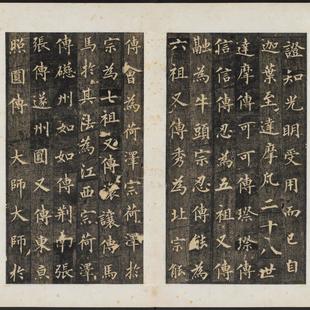 證知光明受用而已自
迦葉至達摩凡二十八世
達摩傳可可傳璨璨傳
信信傳忍為五祖又傳
融為牛頭宗忍傳能為
六祖又傳秀為北宗能
傳會為荷澤宗荷澤於
宗為七祖又傳讓讓傳馬
馬於其法為江西宗荷澤
傳礠州如如傳荊南張
張傳遂州圓又傳東京
照圓傳大師大師於